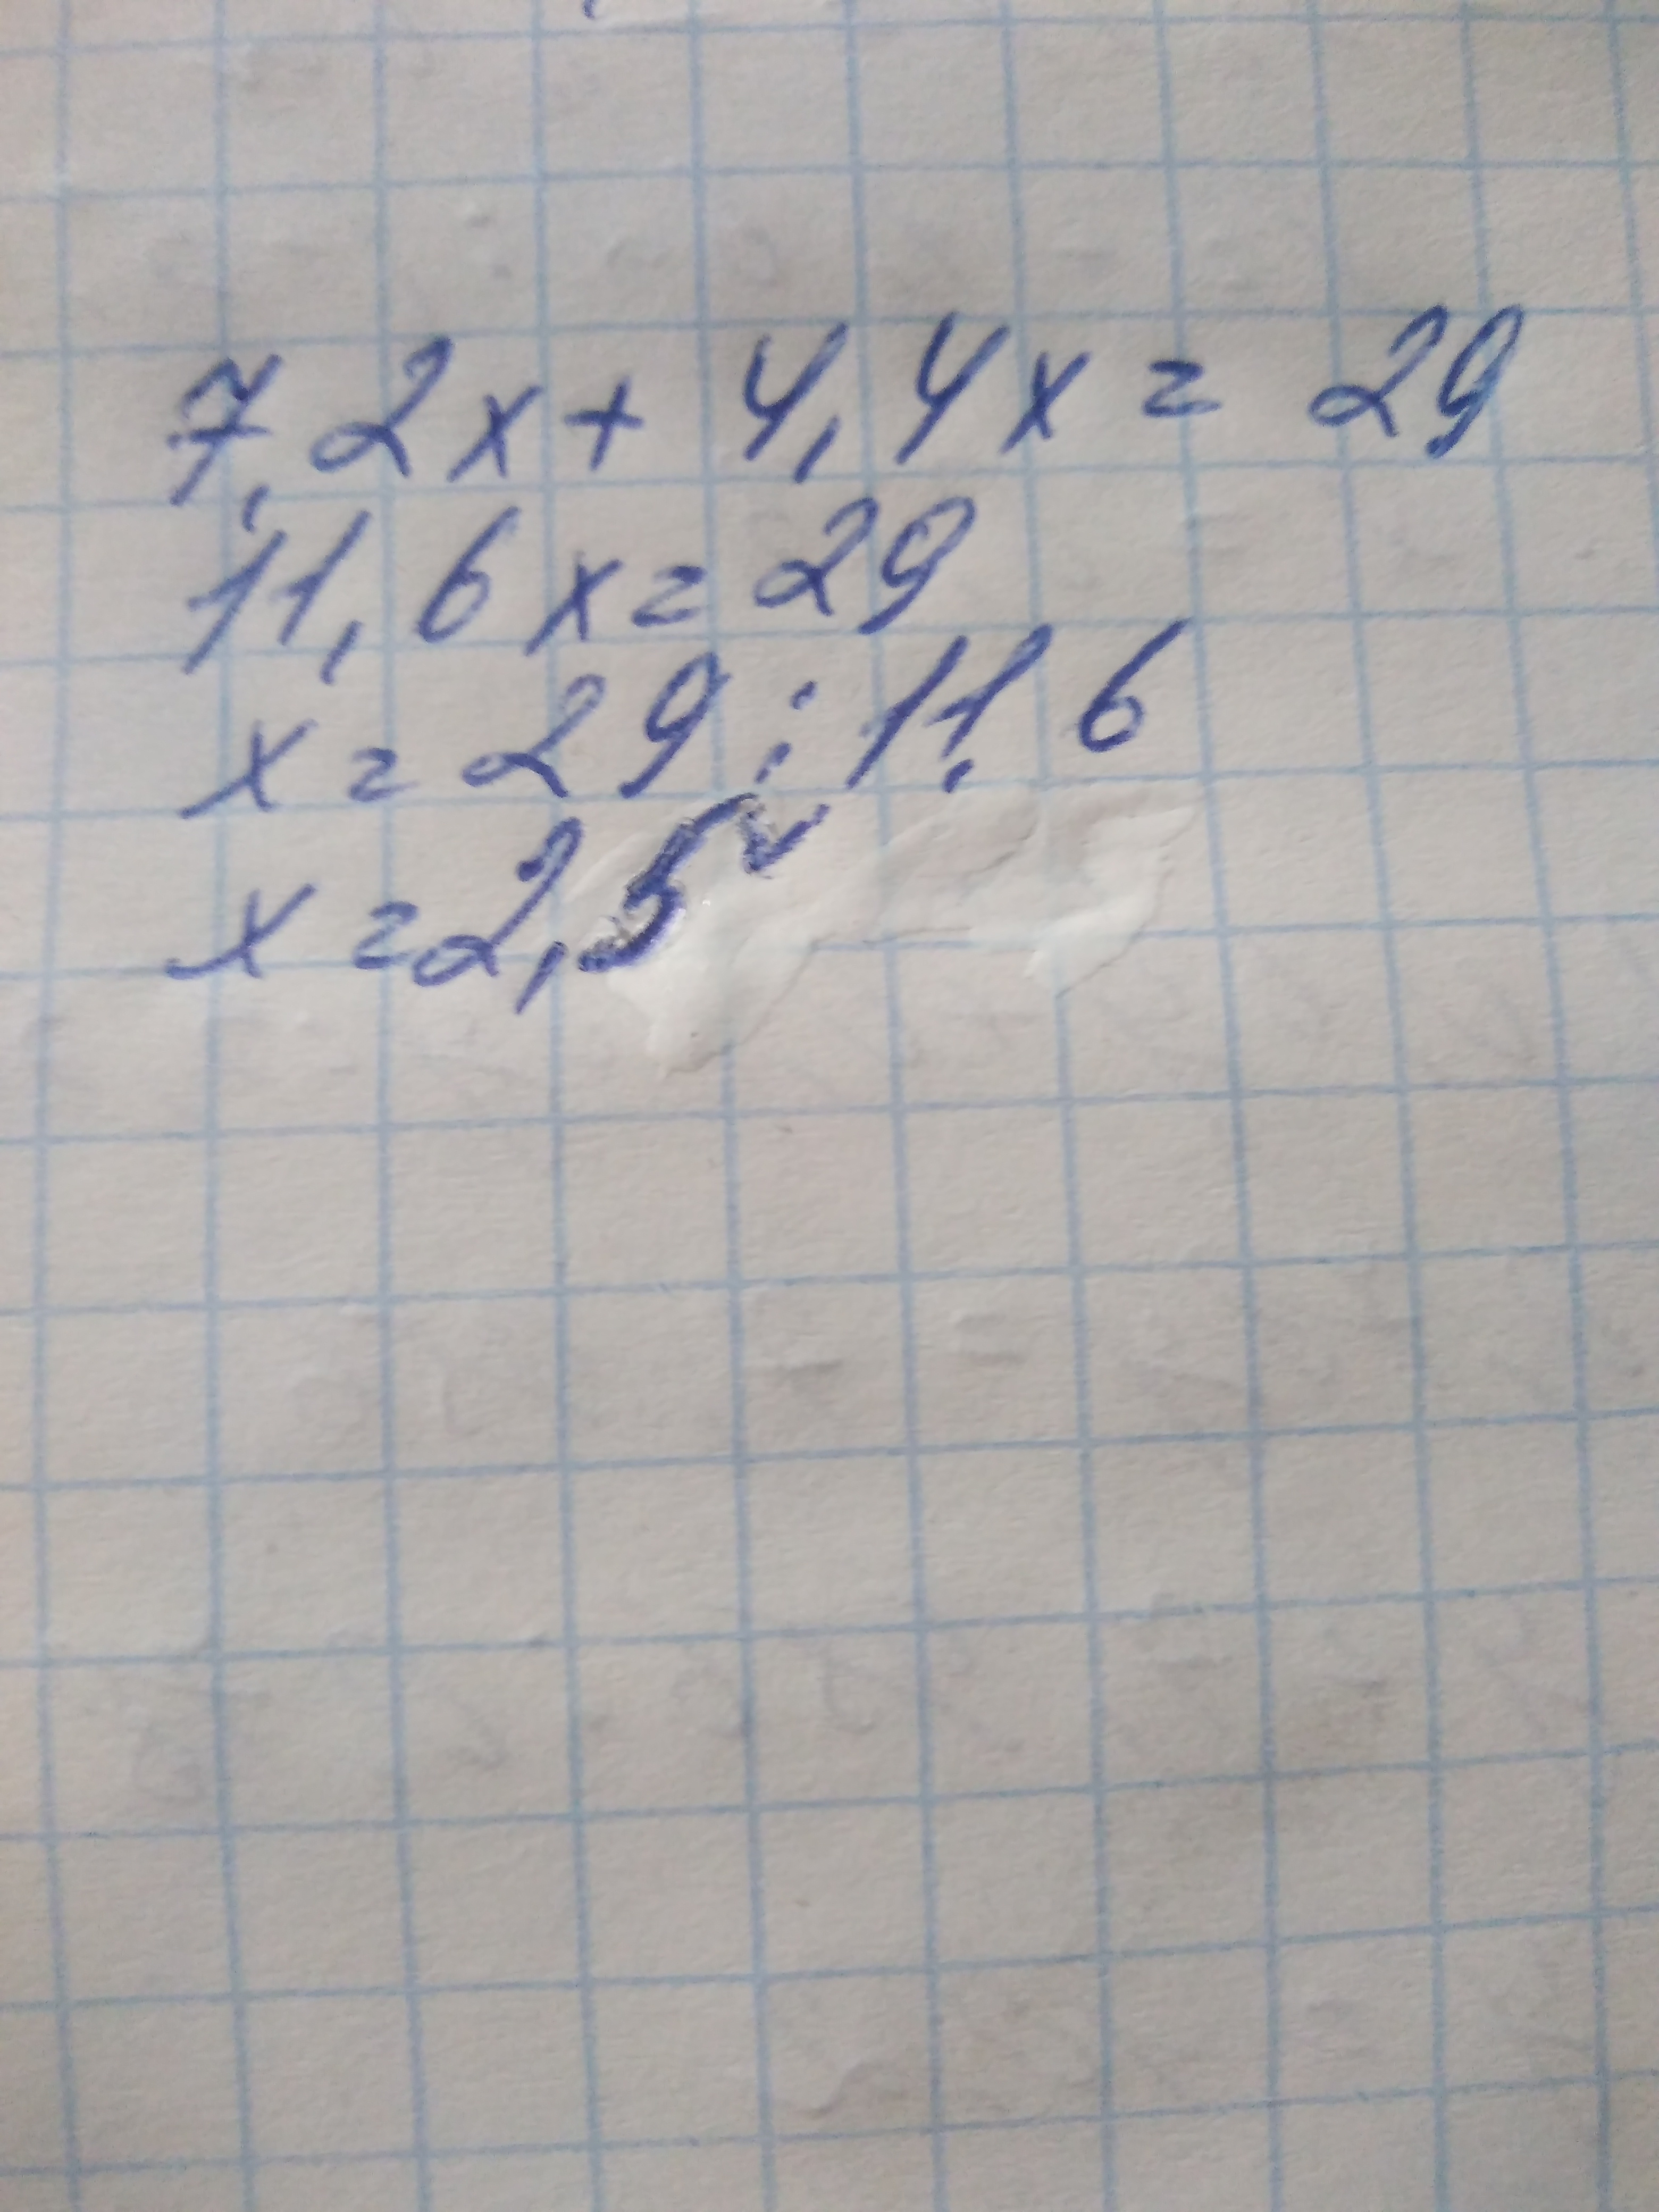 7,2x + 4,4x = 29
11,6x = 29
x = 29 : 11,6
x = 2,5